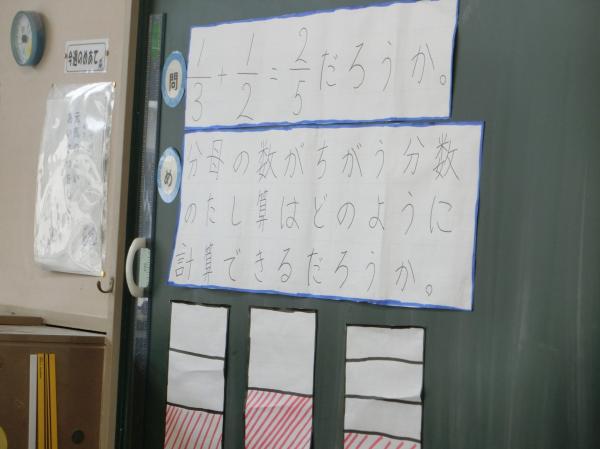 今週のめあて
問
1/3 + 1/2 = 2/5 だろうか。
め
分母の数がちがう分数
のたし算はどのように
計算できるだろうか。